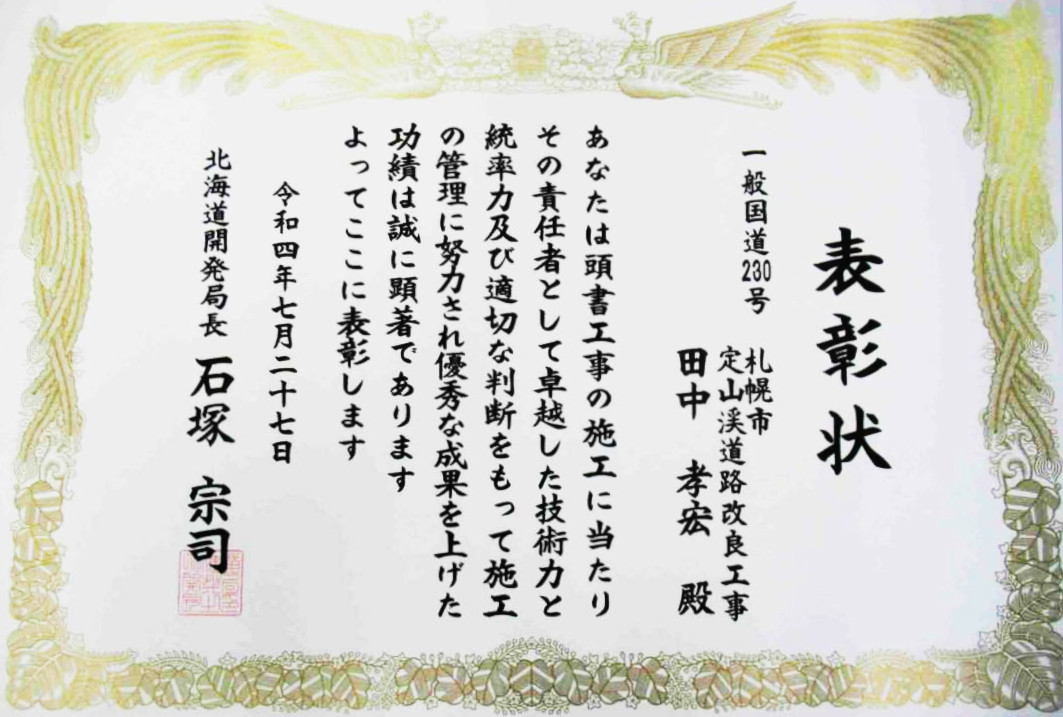 表彰状
一般国道230号
札幌市
定山渓道路改良工事
田中 孝宏 殿
あなたは頭書工事の施工に当たり
その責任者として卓越した技術力と
統率力及び適切な判断をもって施工
の管理に努力され優秀な成果を上げた
功績は誠に顕著であります
よってここに表彰します
令和四年七月二十七日
北海道開発局長 石塚 宗司